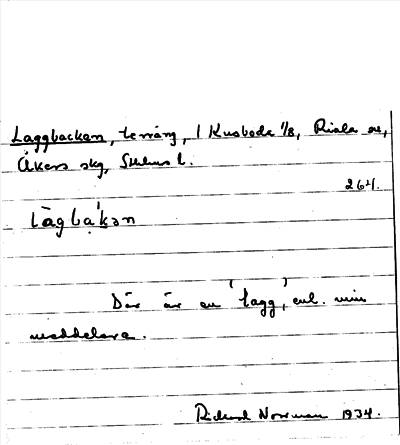 Laggbacken, terräng, 1 Kusboda 1/8, Riala sn,
Åkers skg, Sthlms l.
264.
làgbạ'kən
Där är en 'lagg', enl. min
meddelare.
Rickard Norrman 1934.